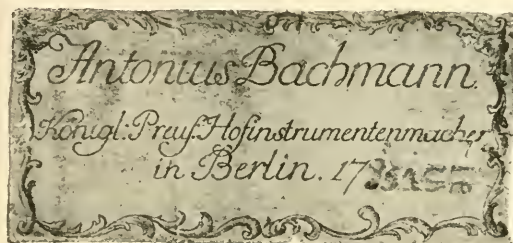 Antonius Bachmann.
Königl: Preuß: Hofinstrumentenmacher
in Berlin. 17